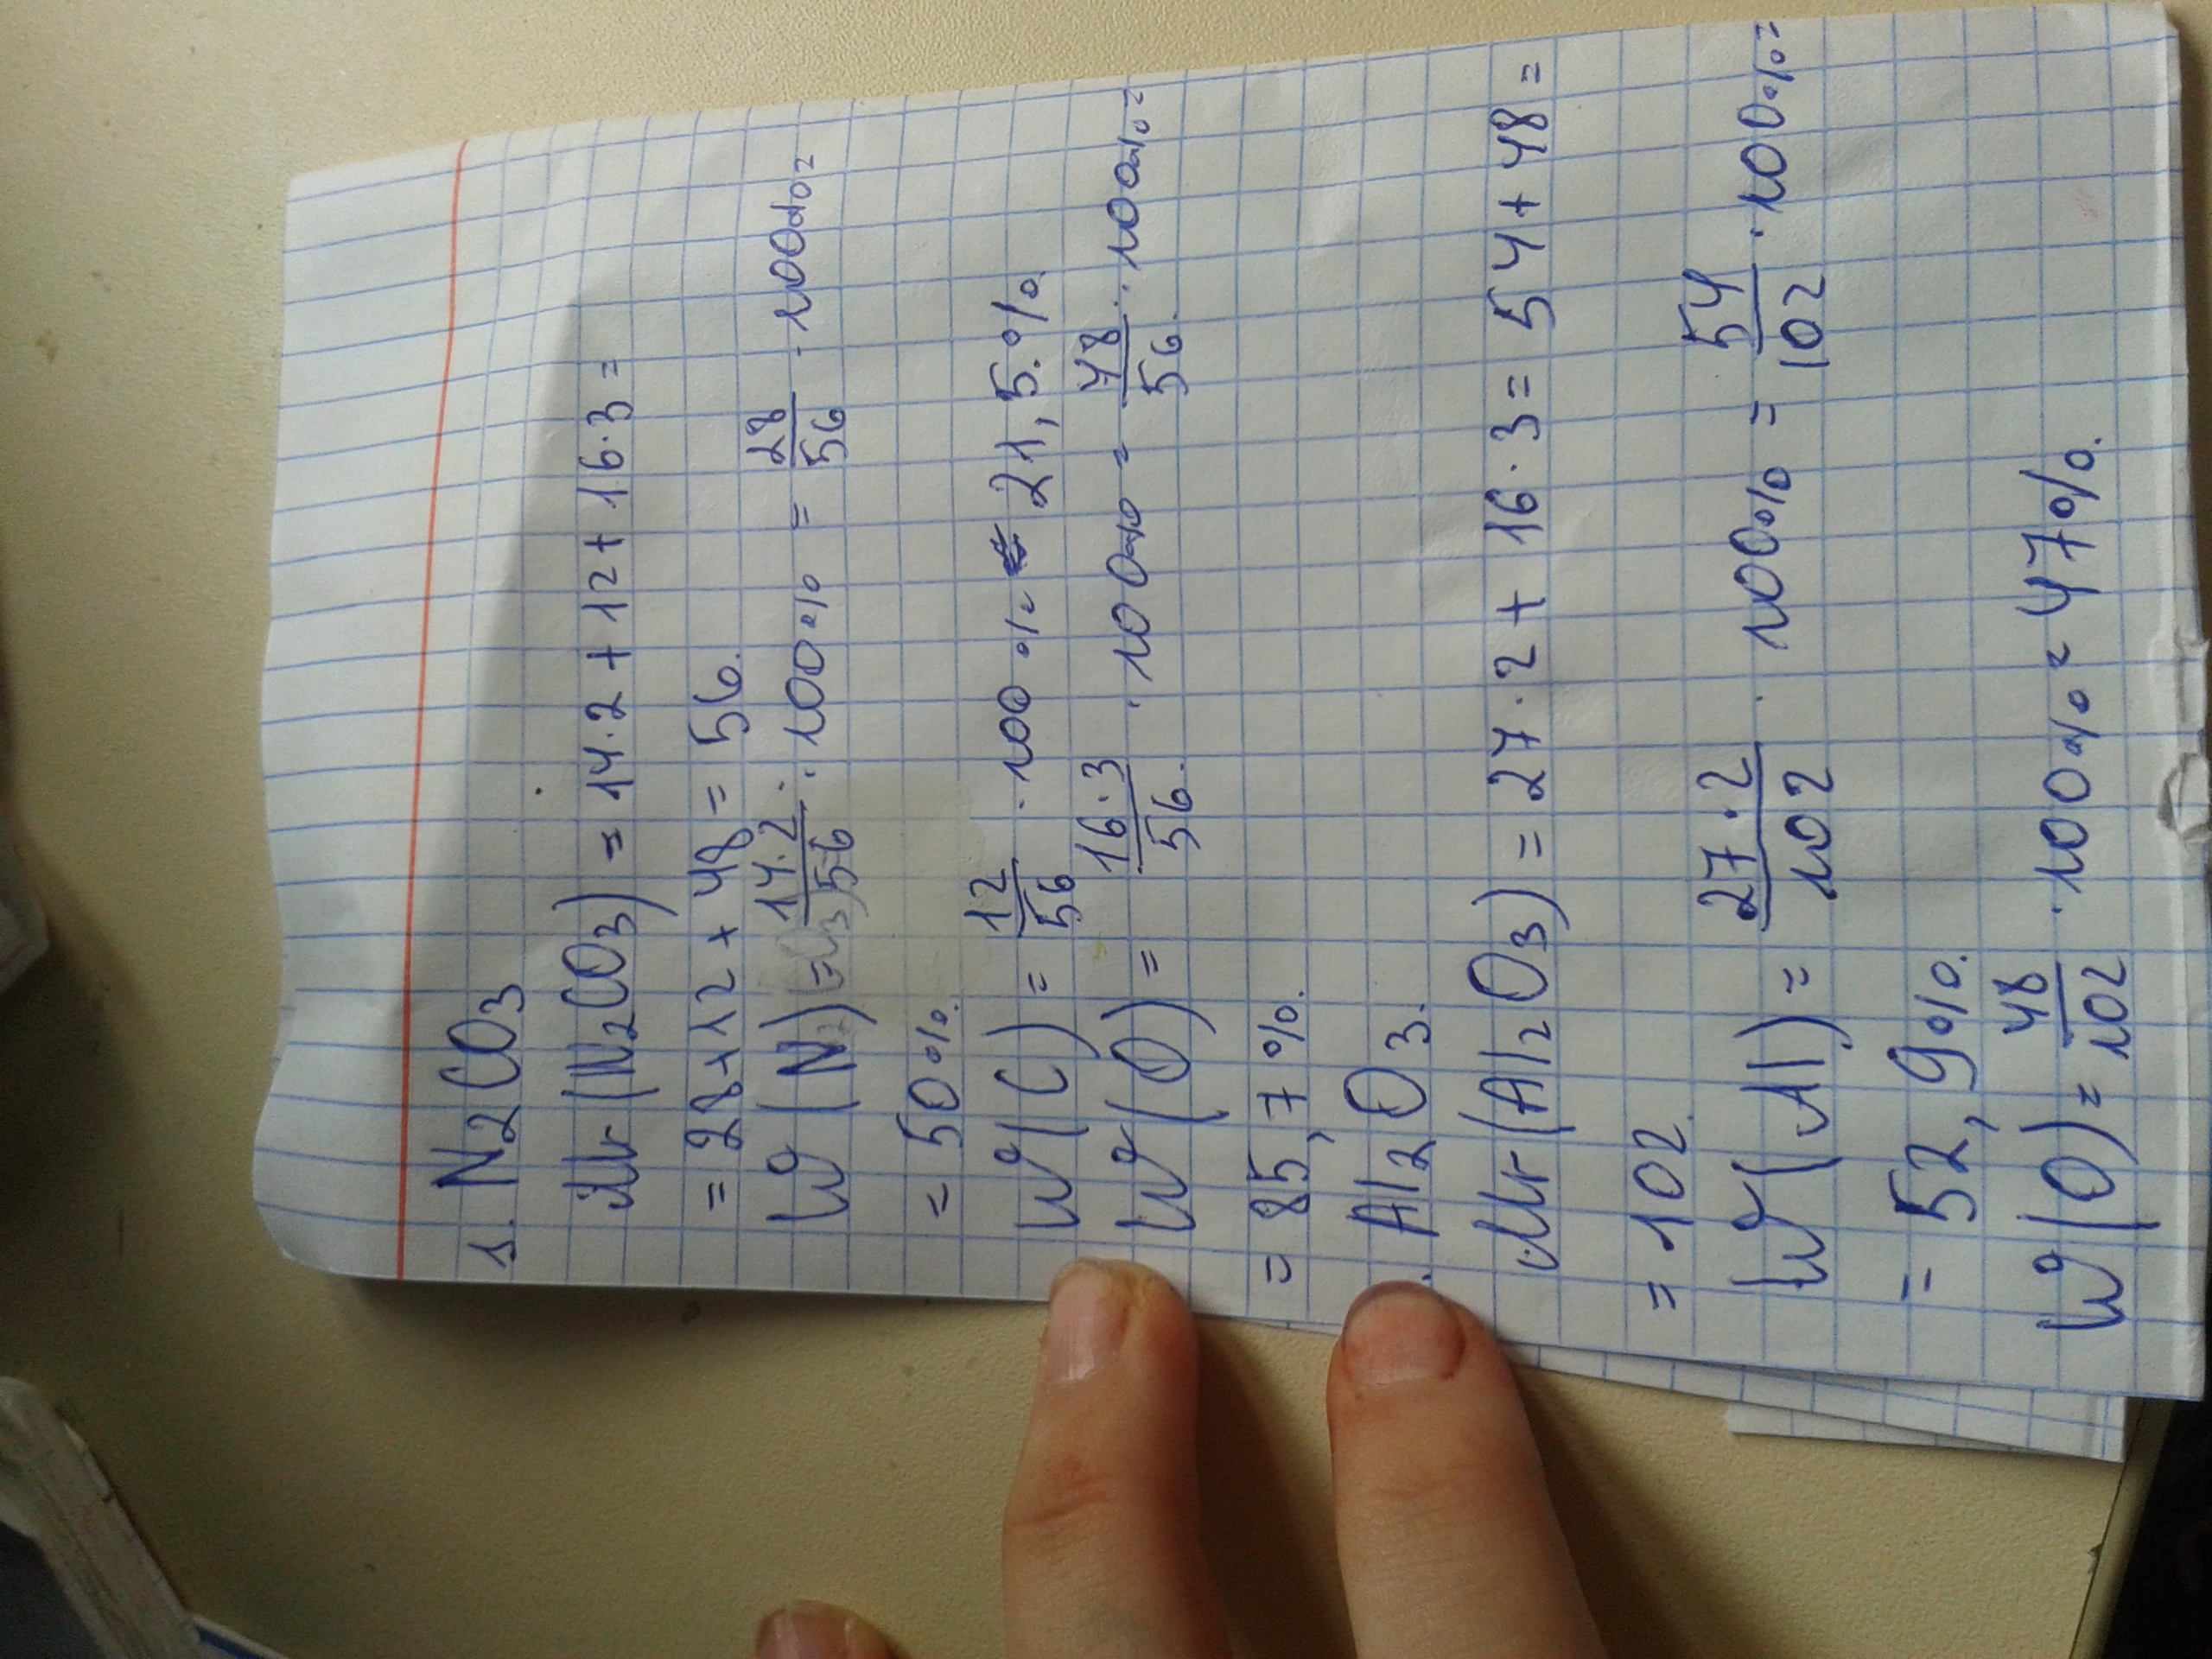 1. N₂CO₃
Mr(N₂CO₃) = 14·2 + 12 + 16·3 =
= 28 + 12 + 48 = 56.
W(N) = 14·2/56 · 100% = 28/56 · 100% =
= 50%.
W(C) = 12/56 · 100% = 21,5%.
W(O) = 16·3/56. · 100% = 48/56. · 100% =
= 85,7%.
Al₂O₃.
Mr(Al₂O₃) = 27·2 + 16·3 = 54 + 48 =
= 102.
W(Al) = 27·2/102 · 100% = 54/102 · 100% =
= 52,9%.
W(O) = 48/102 · 100% = 47%.